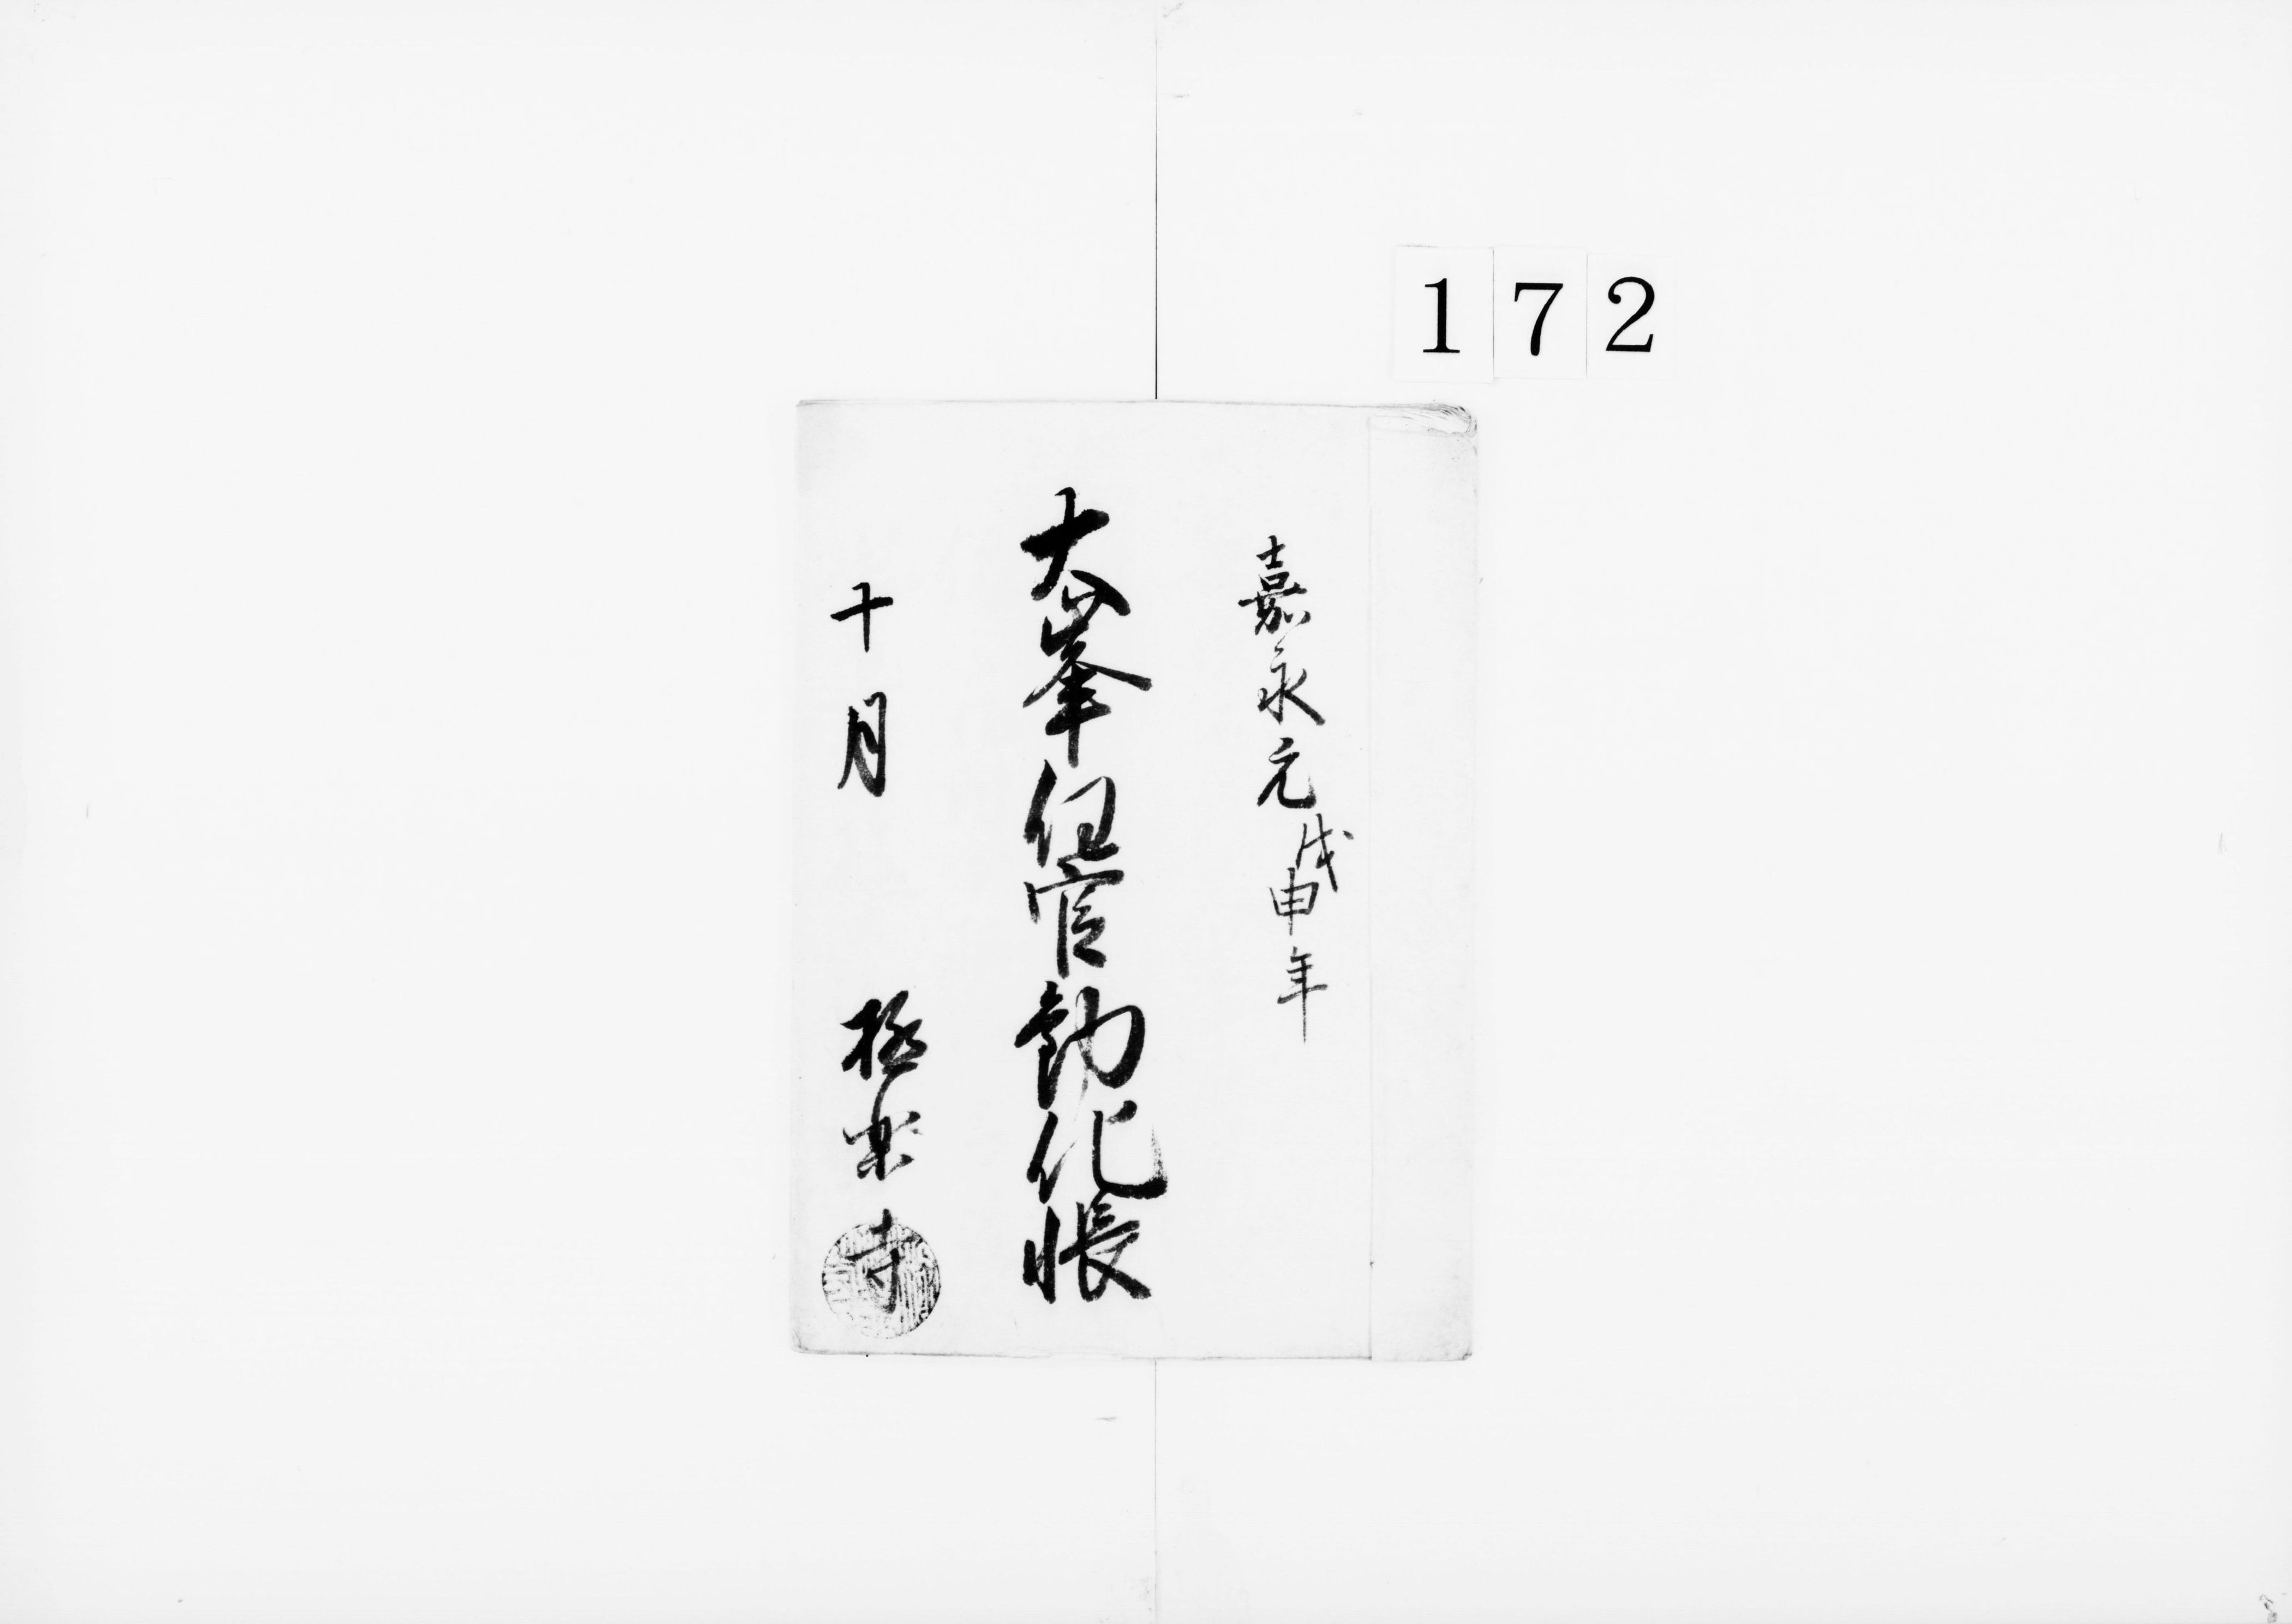 172
嘉永元戊申年
大峯任官勧化帳
十月
極楽寺